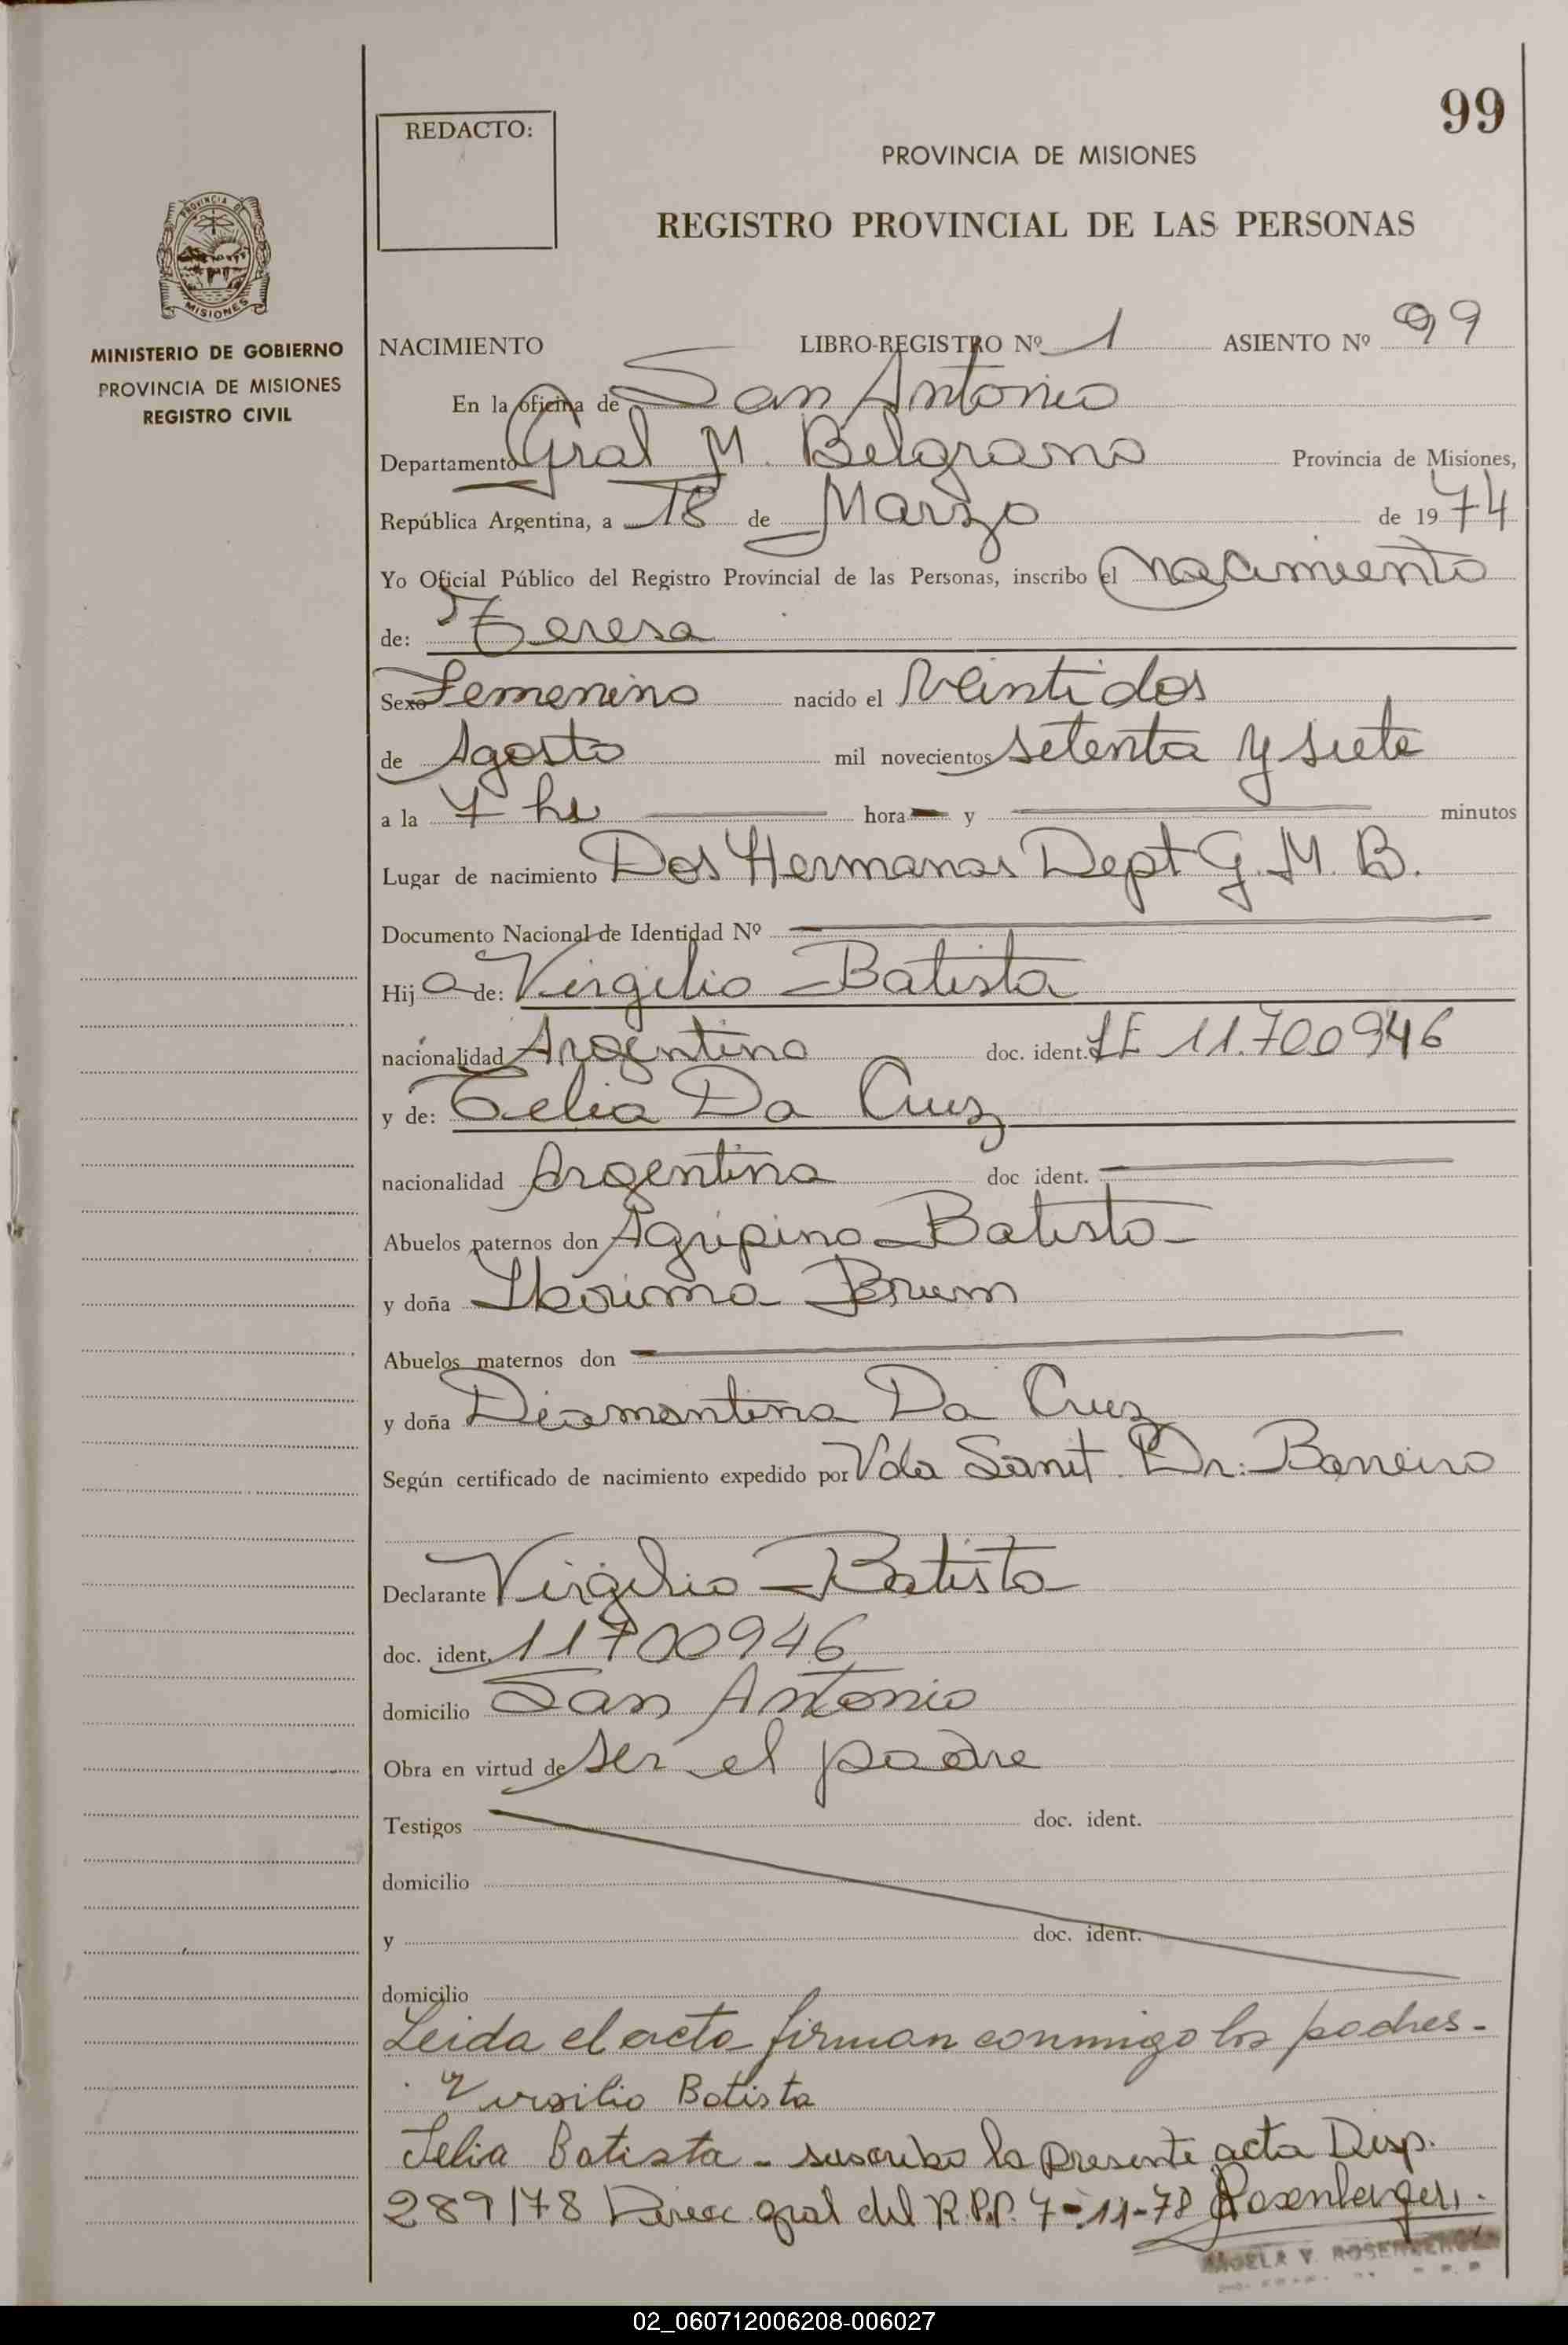 99
REDACTO:
PROVINCIA DE MISIONES
REGISTRO PROVINCIAL DE LAS PERSONAS
PROVINCIA DE
MISIONES
MINISTERIO DE GOBIERNO
PROVINCIA DE MISIONES
REGISTRO CIVIL
NACIMIENTO LIBRO-REGISTRO Nº 1 ASIENTO Nº 99
En la oficina de San Antonio
Departamento Gral M. Belgrano Provincia de Misiones,
República Argentina, a 18 de Marzo de 1974
Yo Oficial Público del Registro Provincial de las Personas, inscribo el nacimiento
de: Teresa
Sexo Femenino nacido el Veintidos
de Agosto mil novecientos setenta y siete
a la 7 hs hora y minutos
Lugar de nacimiento Dos Hermanas Dept G. M. B.
Documento Nacional de Identidad Nº
Hij a de: Virgilio Batista
nacionalidad Argentino doc. ident. LE 11.700946
y de: Telia Da Cruz
nacionalidad Argentina doc ident.
Abuelos paternos don Agripino Batista
y doña Brum
Abuelos maternos don
y doña Diamantina Da Cruz
Según certificado de nacimiento expedido por Vda Sanit. Dr. Barreiro
Declarante Virgilio Batista
doc. ident. 11700946
domicilio San Antonio
Obra en virtud de ser el padre
Testigos doc. ident.
domicilio
y doc. ident.
domicilio
Leida el acta firman conmigo los padres-
Virgilio Batista
Telia Batista - suscribo la presente acta Disp.
289/78 Direcc gral del R.P.P. 7-11-78 Rosenberger
ANGELA V. ROSENBERGER
02_060712006208-006027